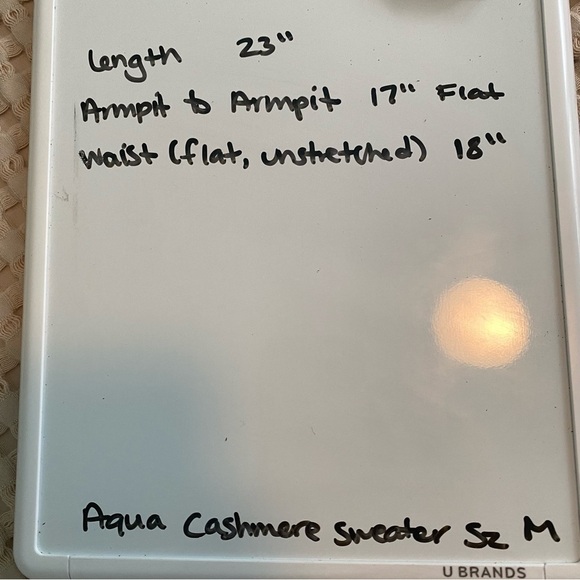 Length 23"
Armpit to Armpit 17" Flat
Waist (flat, unstretched) 18"
Aqua Cashmere sweater Sz M
U BRANDS